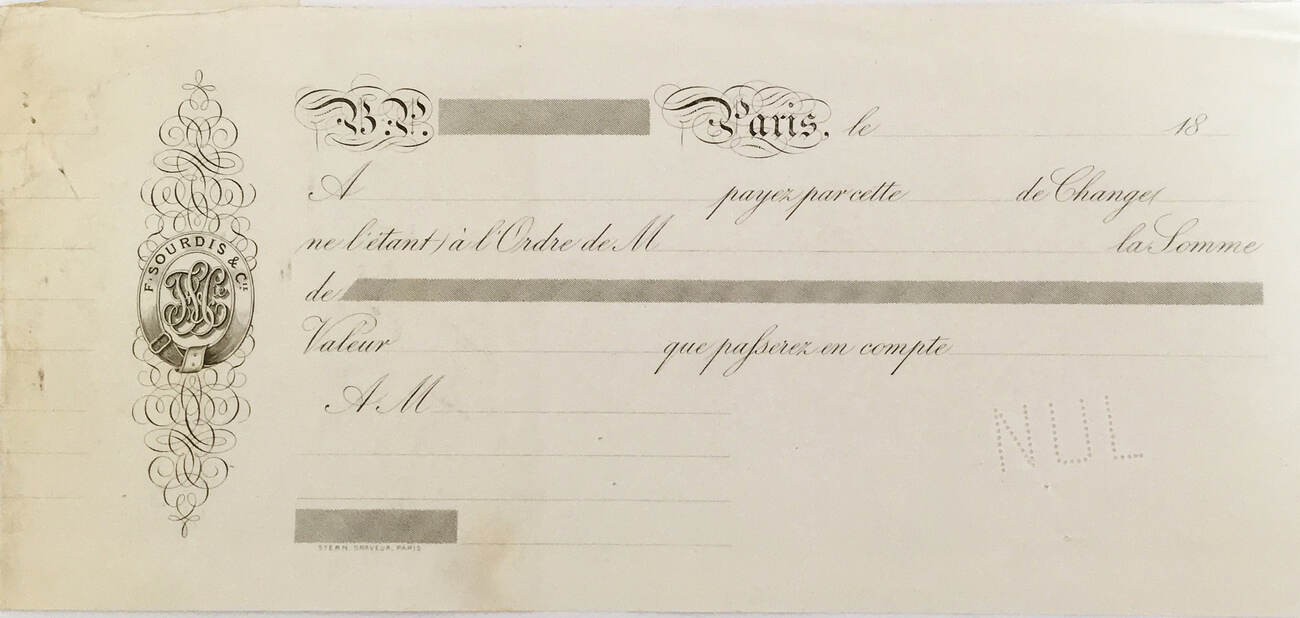 B.P. Paris, le 18
A payez par cette de Change (
ne l'étant) à l'Ordre de M la Somme
de
Valeur que passerez en compte
A M
NUL
STERN GRAVEUR, PARIS
F. SOURDIS & Cie